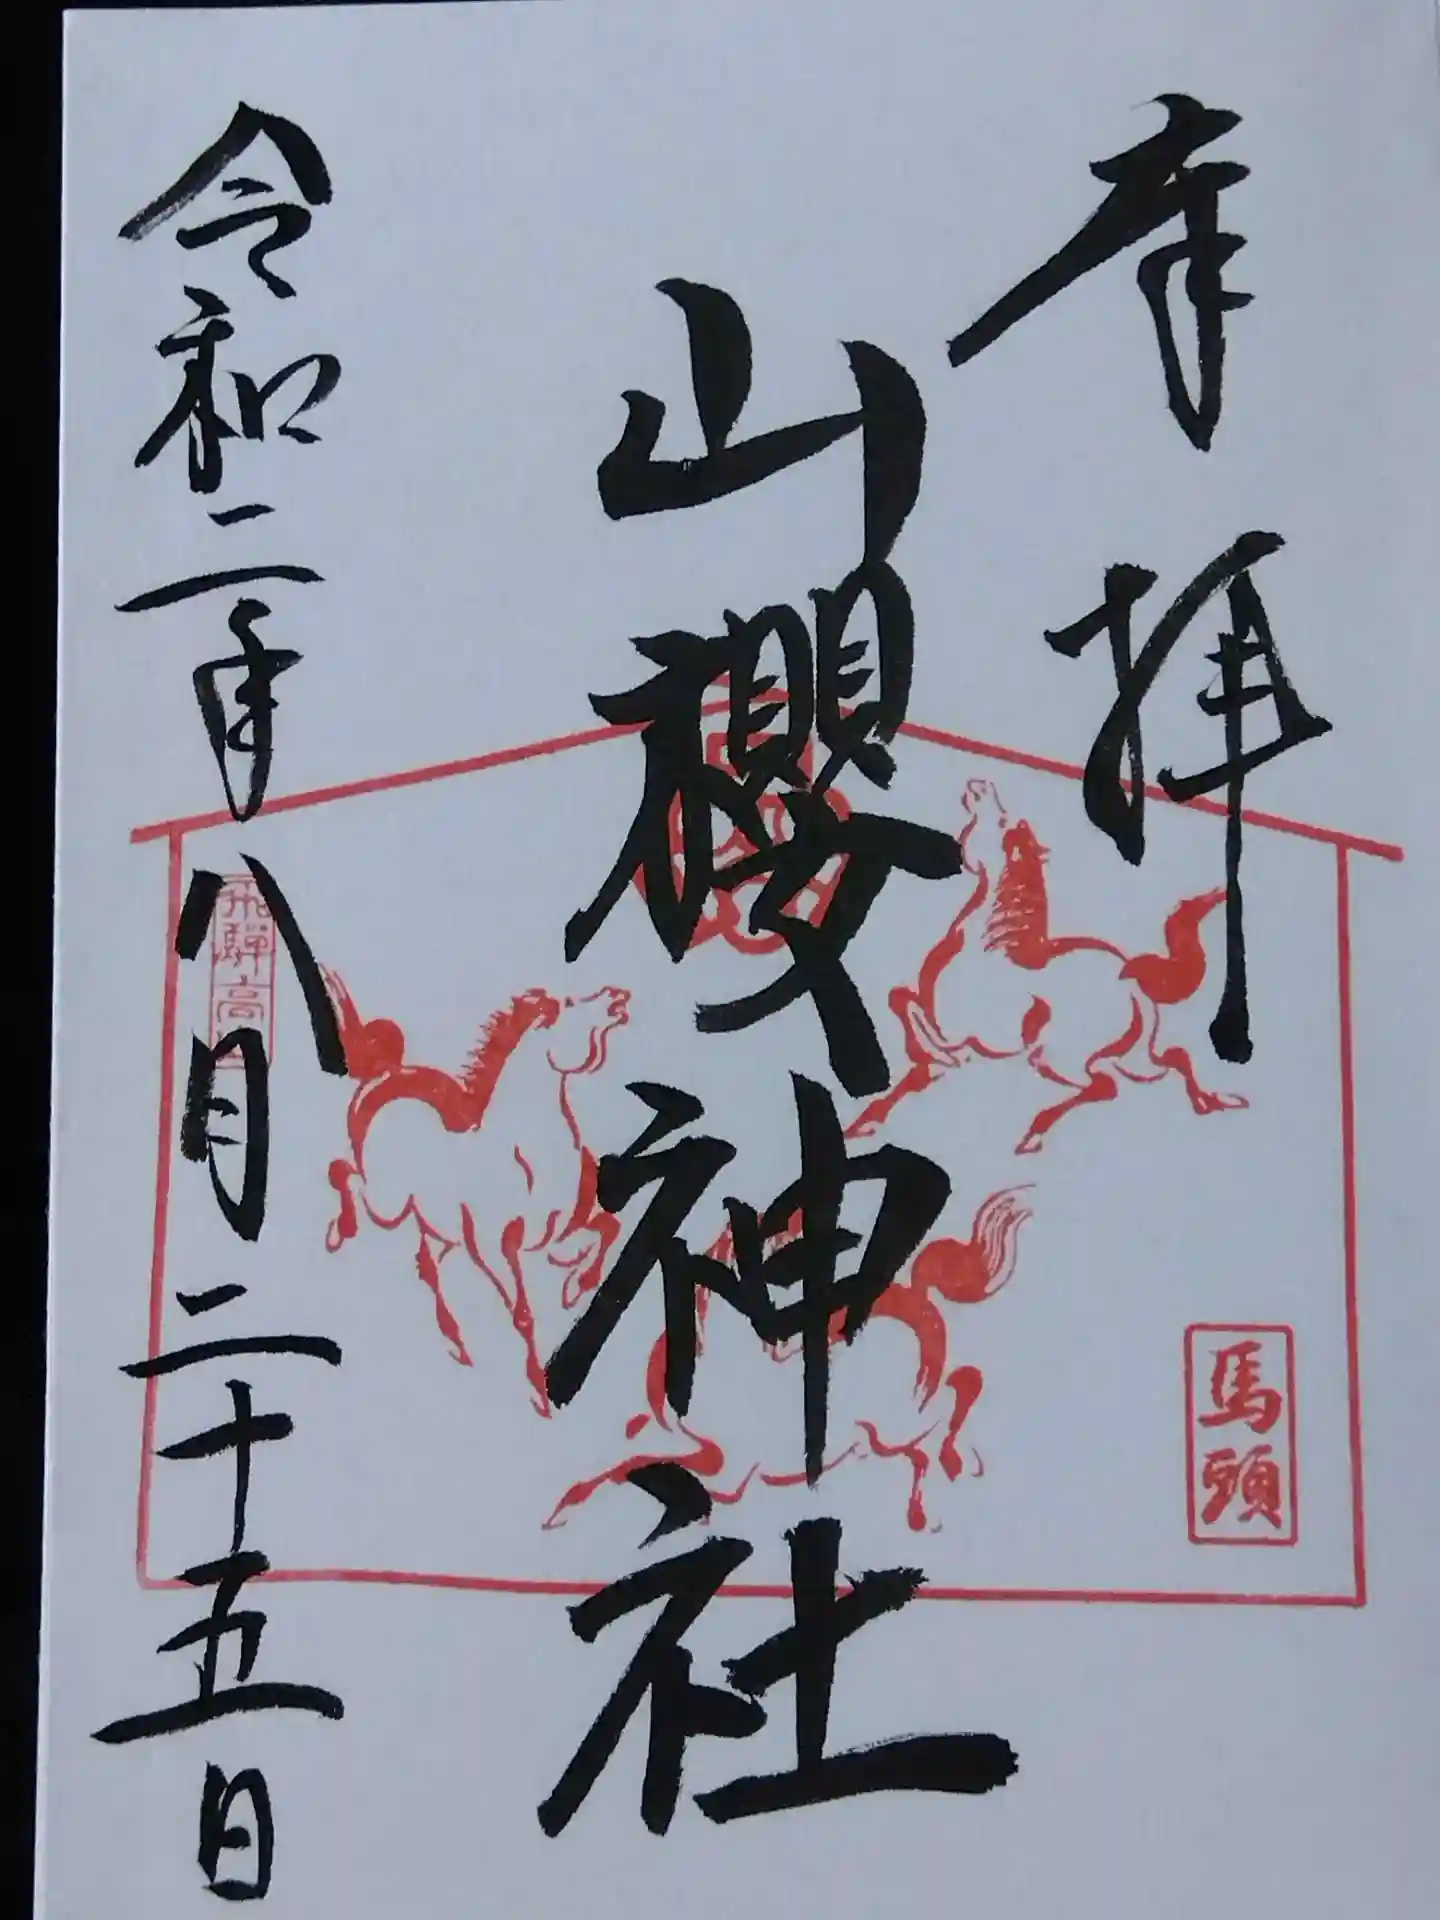 奉拝
山櫻神社
馬頭
令和二年八月二十五日
飛騨高山